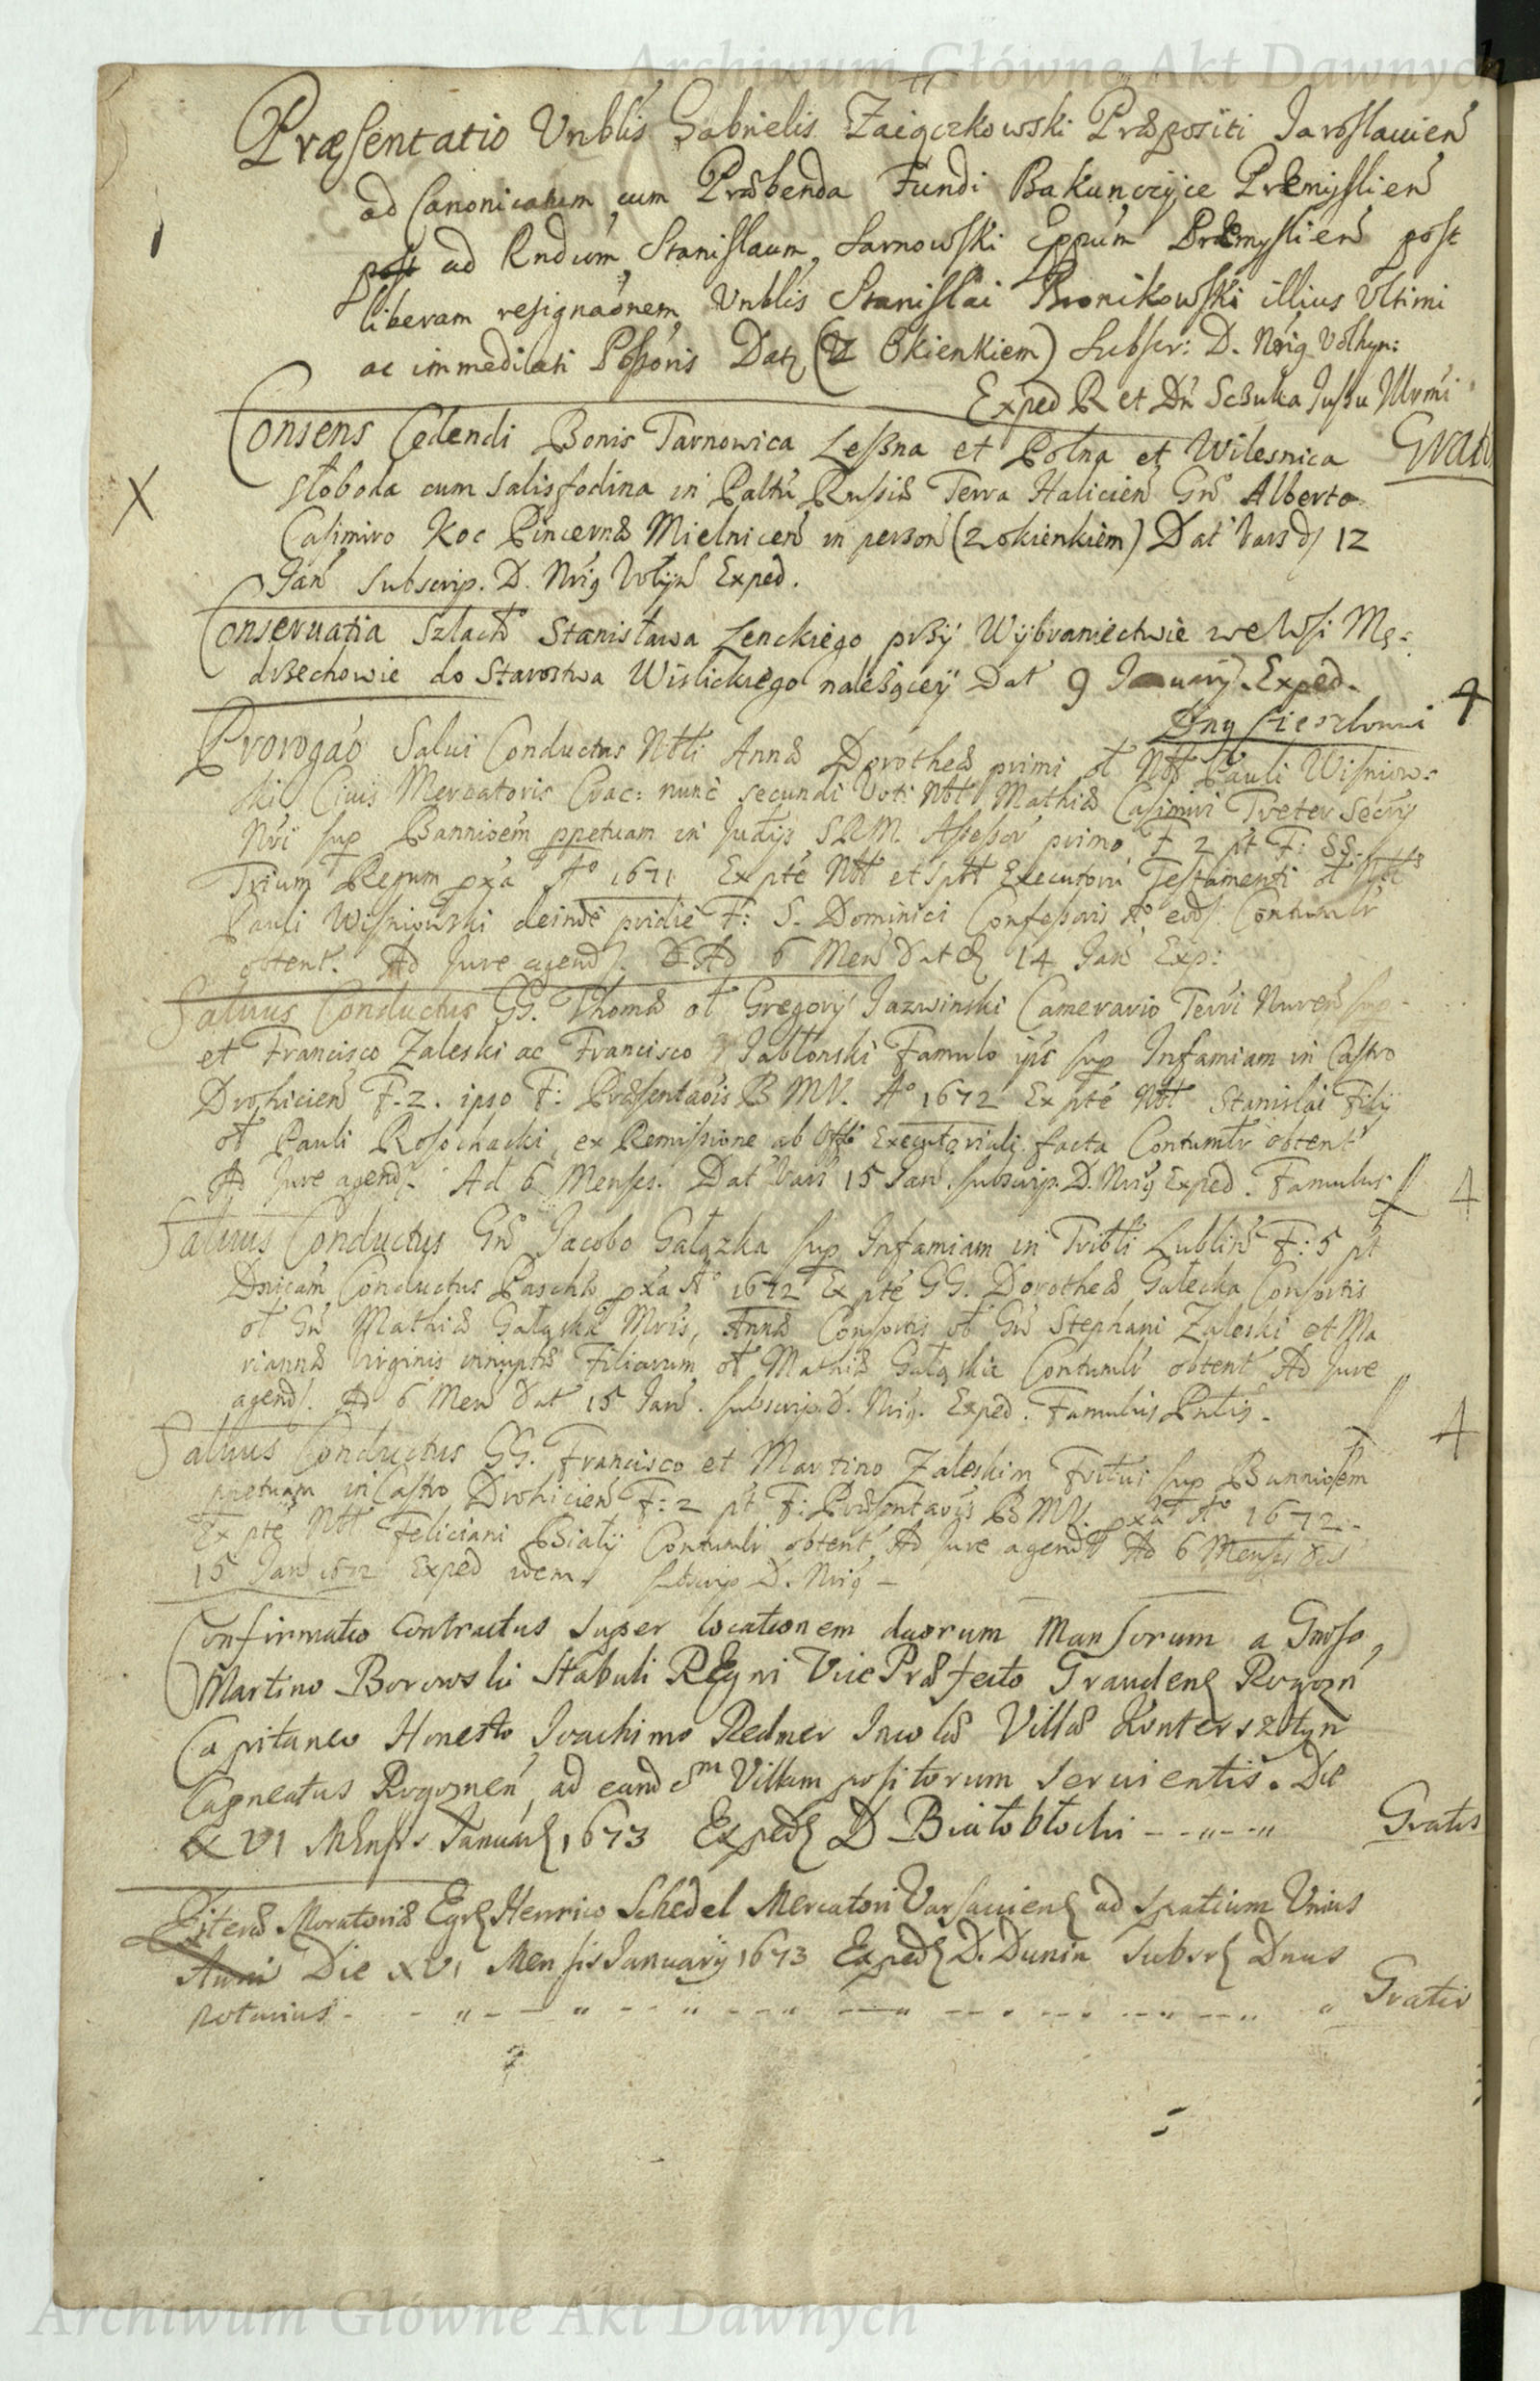 Archiwum Główne Akt Dawnych
Præsentatio Vnblis Gabrielis Zaiączkowski Præpositi Jaroslauien
ad Canonicatum cum Præbenda Fundi Bakunczyce Præmyslien
post ad Rndum Stanislaum Sarnowski Eppum Præmyslien post
liberam resignaonem Vnblis Stanislai Bronikowski illius Vltimi
ac immediati Possoris Dat (Z Okienkiem) Subscr: D. Nrig Volhyn:
Exped R et Dn Sczuka Jussu Illrmi
Consens Cedendi Bonis Tarnowica Leszna et Polna et Wilesnica Grat
słoboda cum salisfodina in Paltu Russiæ Terra Halicien Gn Alberto
Casimiro Koc Pincernæ Mielnicen in person (z okienkiem) Dat Vars d 12
Jan Subscrip. D. Nrig Wołyn Exped.
Conseruatia Szlach Stanisława Lenckiego przy Wybraniectwie we Wsi Mę:
drzechowie do Starostwa Wislickiego należącey Dat 9 January. Exped.
Dng Cieszkowski 4
Prorogao Salui Conductus Nbli Annæ Dorotheæ primi ol Nbl Pauli Wisniow:
ski Ciuis Mercatoris Crac: nunc secundi Voti Nbl Mathiæ Casimiri Treter Secry
Nri sup Bannioem ppetuam in Judys S.R.M. Assessor primo F 2 pt F: SS.
Trium Regum pxa Ao 1671 Ex pte Nbl et Sptl Executoru Testamenti ol Sptis
Pauli Wisniowski deinde pridie F: S. Dominici Confessoris Ao eod Contumlr
obtent. Ad Jure agend. Ad 6 Men Dat d 14 Jan Exp:
Saluus Conductus GG. Thomæ ol Gregory Jazwinski Camerario Terri Nuren sup
et Francisco Zaleski ac Francisco Jabłonski Famulo ips sup Infamiam in Castro
Drohicien F. 2. ipso F: Præsentaois B M V. Ao 1672 Ex pte Nbl Stanislai Fily
ol Pauli Rosochacki, ex Remissione ab Offo Executoriali facta Contumlr obtent
Ad Jure agend. Ad 6 Menses. Dat Vars 15 Jan. subscrip. D. Nrig Exped. Famulus 4
Saluus Conductus Gn Jacobo Gałązka sup Infamiam in Tribli Lublin F: 5 pt
Dnicam Conductus Paschæ pxa Ao 1672 Ex pte GG. Dorotheæ Gałecka Consortis
ol Gn Mathiæ Gałąska Mris, Annæ Consortis ol Gn Stephani Zaleski et Ma
riannæ Virginis innuptæ Filiarum ol Mathiæ Gałąska Contumlr obtent Ad Jure
agend. Ad 6 Men Dat 15 Jan. subscrip D. Nrig. Exped. Famulus Patis.
4
Saluus Conductus GG. Francisco et Martino Zaleskim Fribus sup Banniosem
ppetuam in Castro Drohicien F: 2 pt F: Præsentaois B M V. pxa Ao 1672
Ex pte Nbl Feliciani Biały Contumlr obtent Ad Jure agend Ad 6 Menses Dat
15 Jan 1672 Exped idem. subscrip D. Nrig
Confirmatio Contractus super locationem duorum Mansorum a Gnoso
Martino Borowski Stabuli Regni Vice Præfecto Grauden Rogozn
Capitaneo Honesto Joachimo Redmer Incolæ Villæ Konterszotyn
Capneatus Rogoznen, ad eandem Villam positorum seruientis. Die
XVI Mensis January 1673 Exped D Białobłocki Gratis
Literæ Moratoriæ Egr Henrico Schedel Mercatori Varsauien ad spatium Vnius
Anni Die XVI Mensis January 1673 Exped D. Dunin Subscr Dnus
Notarius Gratis
Archiwum Główne Akt Dawnych